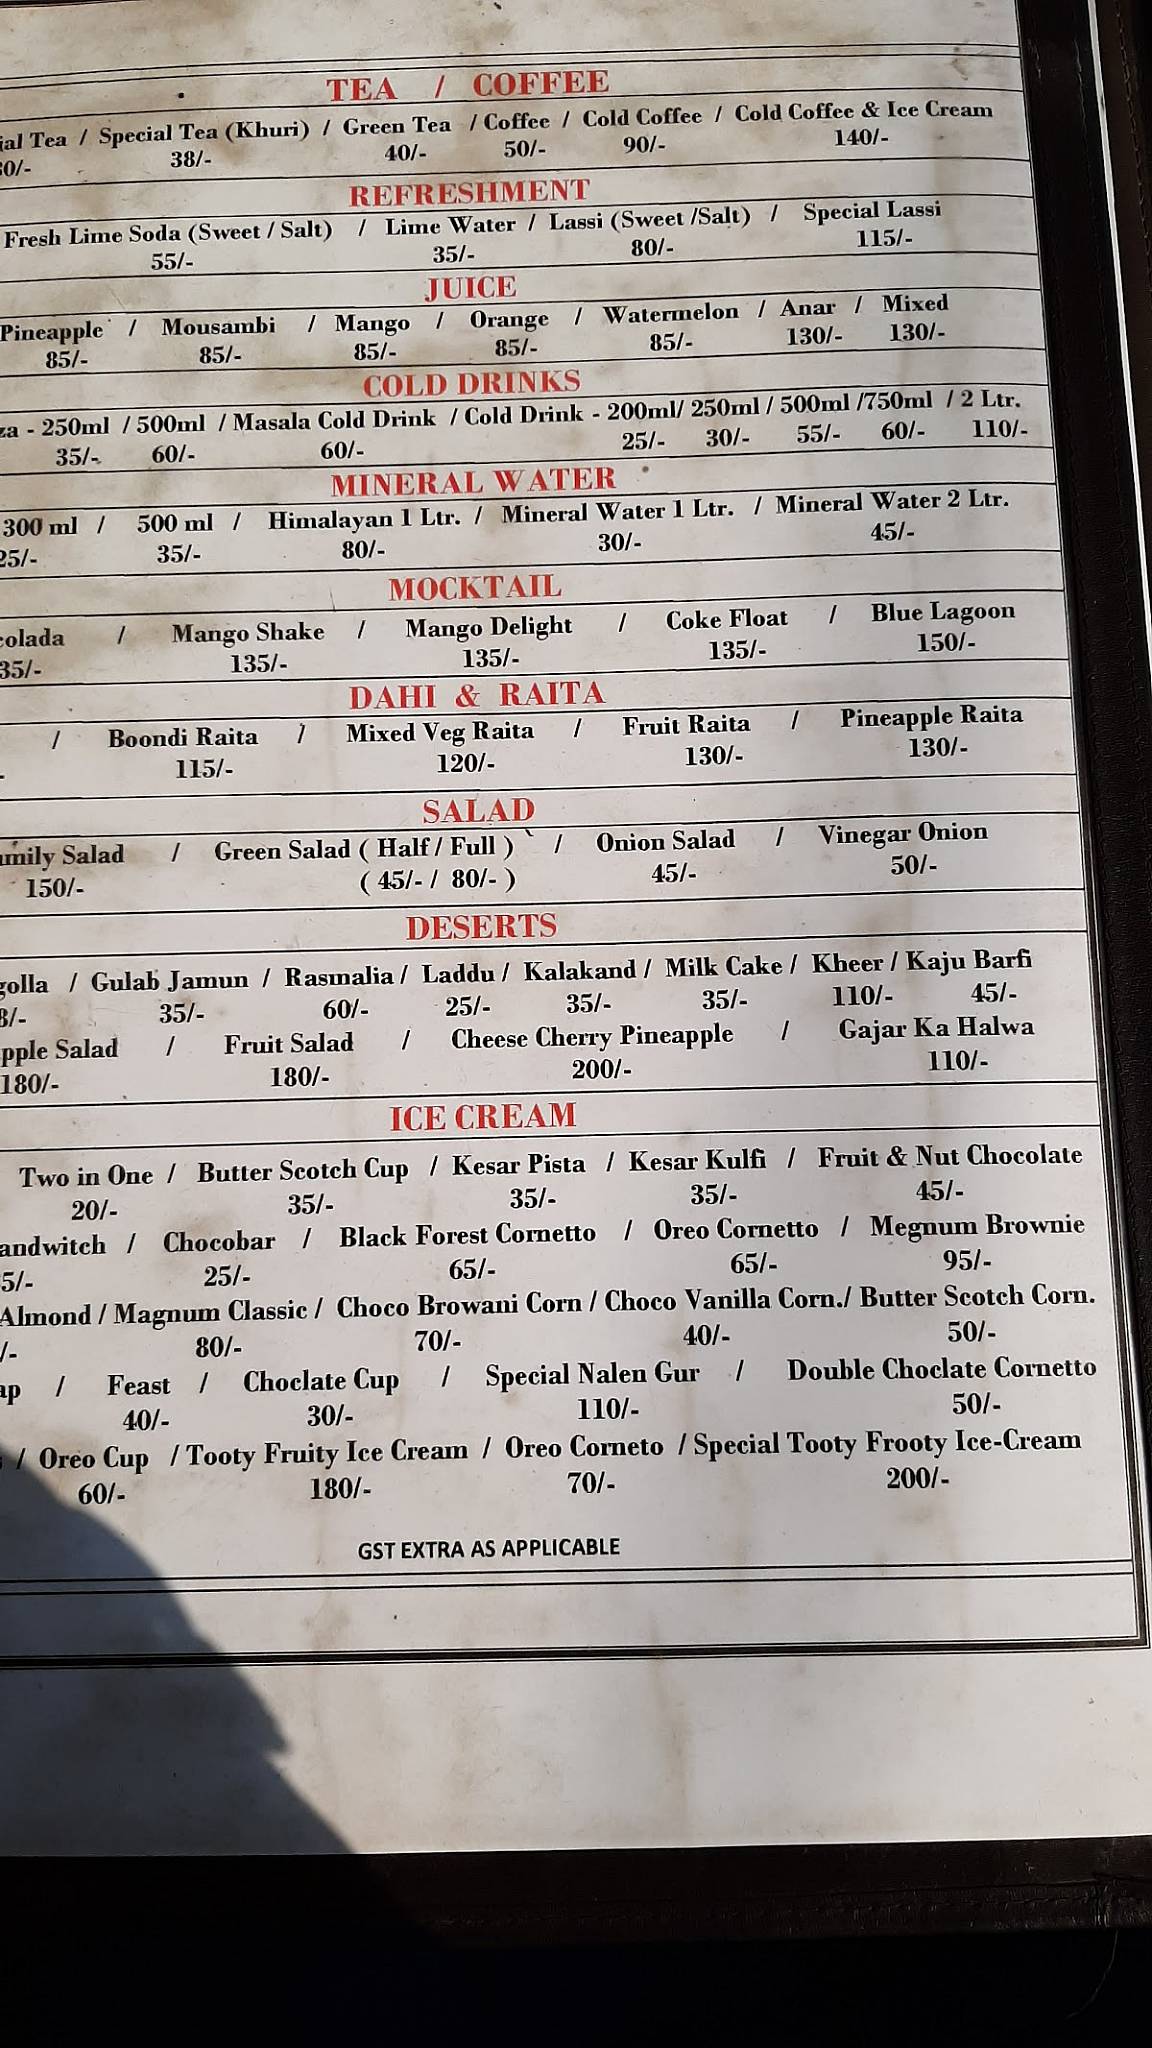 TEA / COFFEE
Tea / Special Tea (Khuri) / Green Tea / Coffee / Cold Coffee / Cold Coffee & Ice Cream
38/- 40/- 50/- 90/- 140/-
REFRESHMENT
Fresh Lime Soda (Sweet / Salt) / Lime Water / Lassi (Sweet /Salt) / Special Lassi
55/- 35/- 80/- 115/-
JUICE
Pineapple / Mousambi / Mango / Orange / Watermelon / Anar / Mixed
85/- 85/- 85/- 85/- 85/- 130/- 130/-
COLD DRINKS
- 250ml / 500ml / Masala Cold Drink / Cold Drink - 200ml/ 250ml / 500ml /750ml / 2 Ltr.
35/- 60/- 60/- 25/- 30/- 55/- 60/- 110/-
MINERAL WATER
300 ml / 500 ml / Himalayan 1 Ltr. / Mineral Water 1 Ltr. / Mineral Water 2 Ltr.
25/- 35/- 80/- 30/- 45/-
MOCKTAIL
colada / Mango Shake / Mango Delight / Coke Float / Blue Lagoon
35/- 135/- 135/- 135/- 150/-
DAHI & RAITA
/ Boondi Raita / Mixed Veg Raita / Fruit Raita / Pineapple Raita
115/- 120/- 130/- 130/-
SALAD
Salad / Green Salad ( Half / Full ) / Onion Salad / Vinegar Onion
150/- ( 45/- / 80/- ) 45/- 50/-
DESERTS
golla / Gulab Jamun / Rasmalia / Laddu / Kalakand / Milk Cake / Kheer / Kaju Barfi
35/- 60/- 25/- 35/- 35/- 110/- 45/-
pple Salad / Fruit Salad / Cheese Cherry Pineapple / Gajar Ka Halwa
180/- 180/- 200/- 110/-
ICE CREAM
Two in One / Butter Scotch Cup / Kesar Pista / Kesar Kulfi / Fruit & Nut Chocolate
20/- 35/- 35/- 35/- 45/-
andwitch / Chocobar / Black Forest Cornetto / Oreo Cornetto / Megnum Brownie
5/- 25/- 65/- 65/- 95/-
Almond / Magnum Classic / Choco Browani Corn / Choco Vanilla Corn./ Butter Scotch Corn.
/- 80/- 70/- 40/- 50/-
/ Feast / Choclate Cup / Special Nalen Gur / Double Choclate Cornetto
40/- 30/- 110/- 50/-
/ Oreo Cup / Tooty Fruity Ice Cream / Oreo Corneto / Special Tooty Frooty Ice-Cream
60/- 180/- 70/- 200/-
GST EXTRA AS APPLICABLE